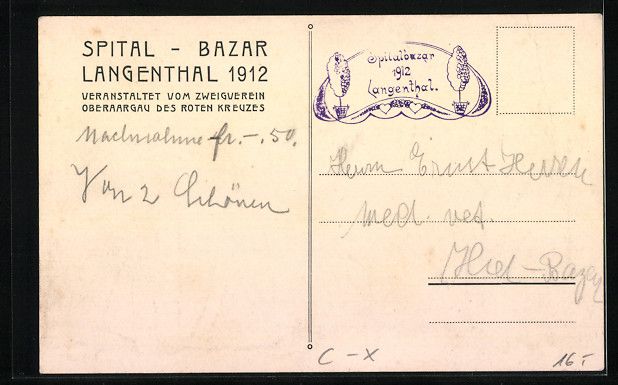 SPITAL - BAZAR
LANGENTHAL 1912
VERANSTALTET VOM ZWEIGVEREIN
OBERAARGAU DES ROTEN KREUZES
Nachnahme fr. -.50.
Von 2 Schönen
Spitalbazar
1912
Langenthal.
Herrn Ernst
med. vet.
C - X
16.-